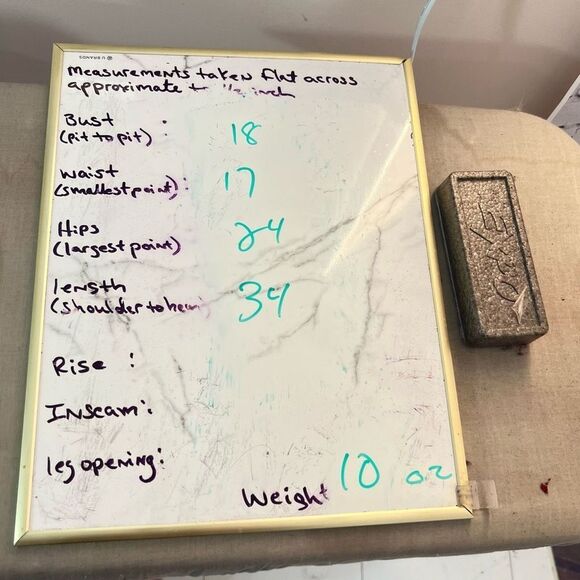 U BRANDS
Measurements taken flat across
approximate to 1/2 inch
Bust :
(pit to pit)
18
Waist :
(smallest point)
17
Hips
(largest point)
24
length
(shoulder to hem)
34
Rise :
Inseam :
leg opening:
Weight 10 oz